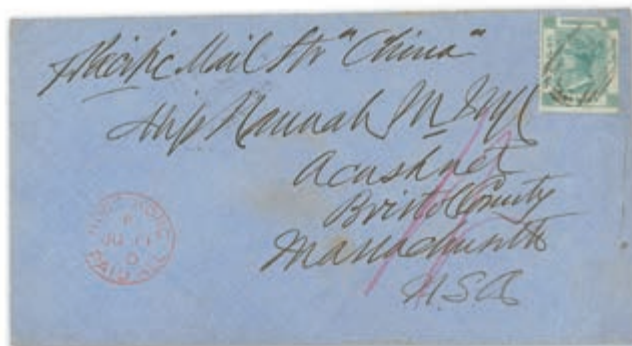 p Pacific Mail Str "China"
Miss Hannah M
Acushnet
Bristol County
Massachusetts
U.S.A
HONG KONG
PAID ALL